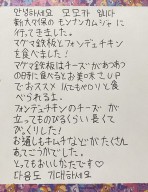 안녕하세요 모모카 입니다
新大久保のモンナンカムジャに
行ってきました。
マグマ鉄板とフォンデュチキン
を食べました!
マグマ鉄板はチーズがあつあつ
の時に食べるとお美味さUP
でおススメ
食べられるエ、
フォンデュチキンのチーズが
立ってものびるくらい長くて
びっくりした!
お通しもキムチなどがたくさん
あってごうかでした。
とってもおいしかったです♡
다음도 기대하세요